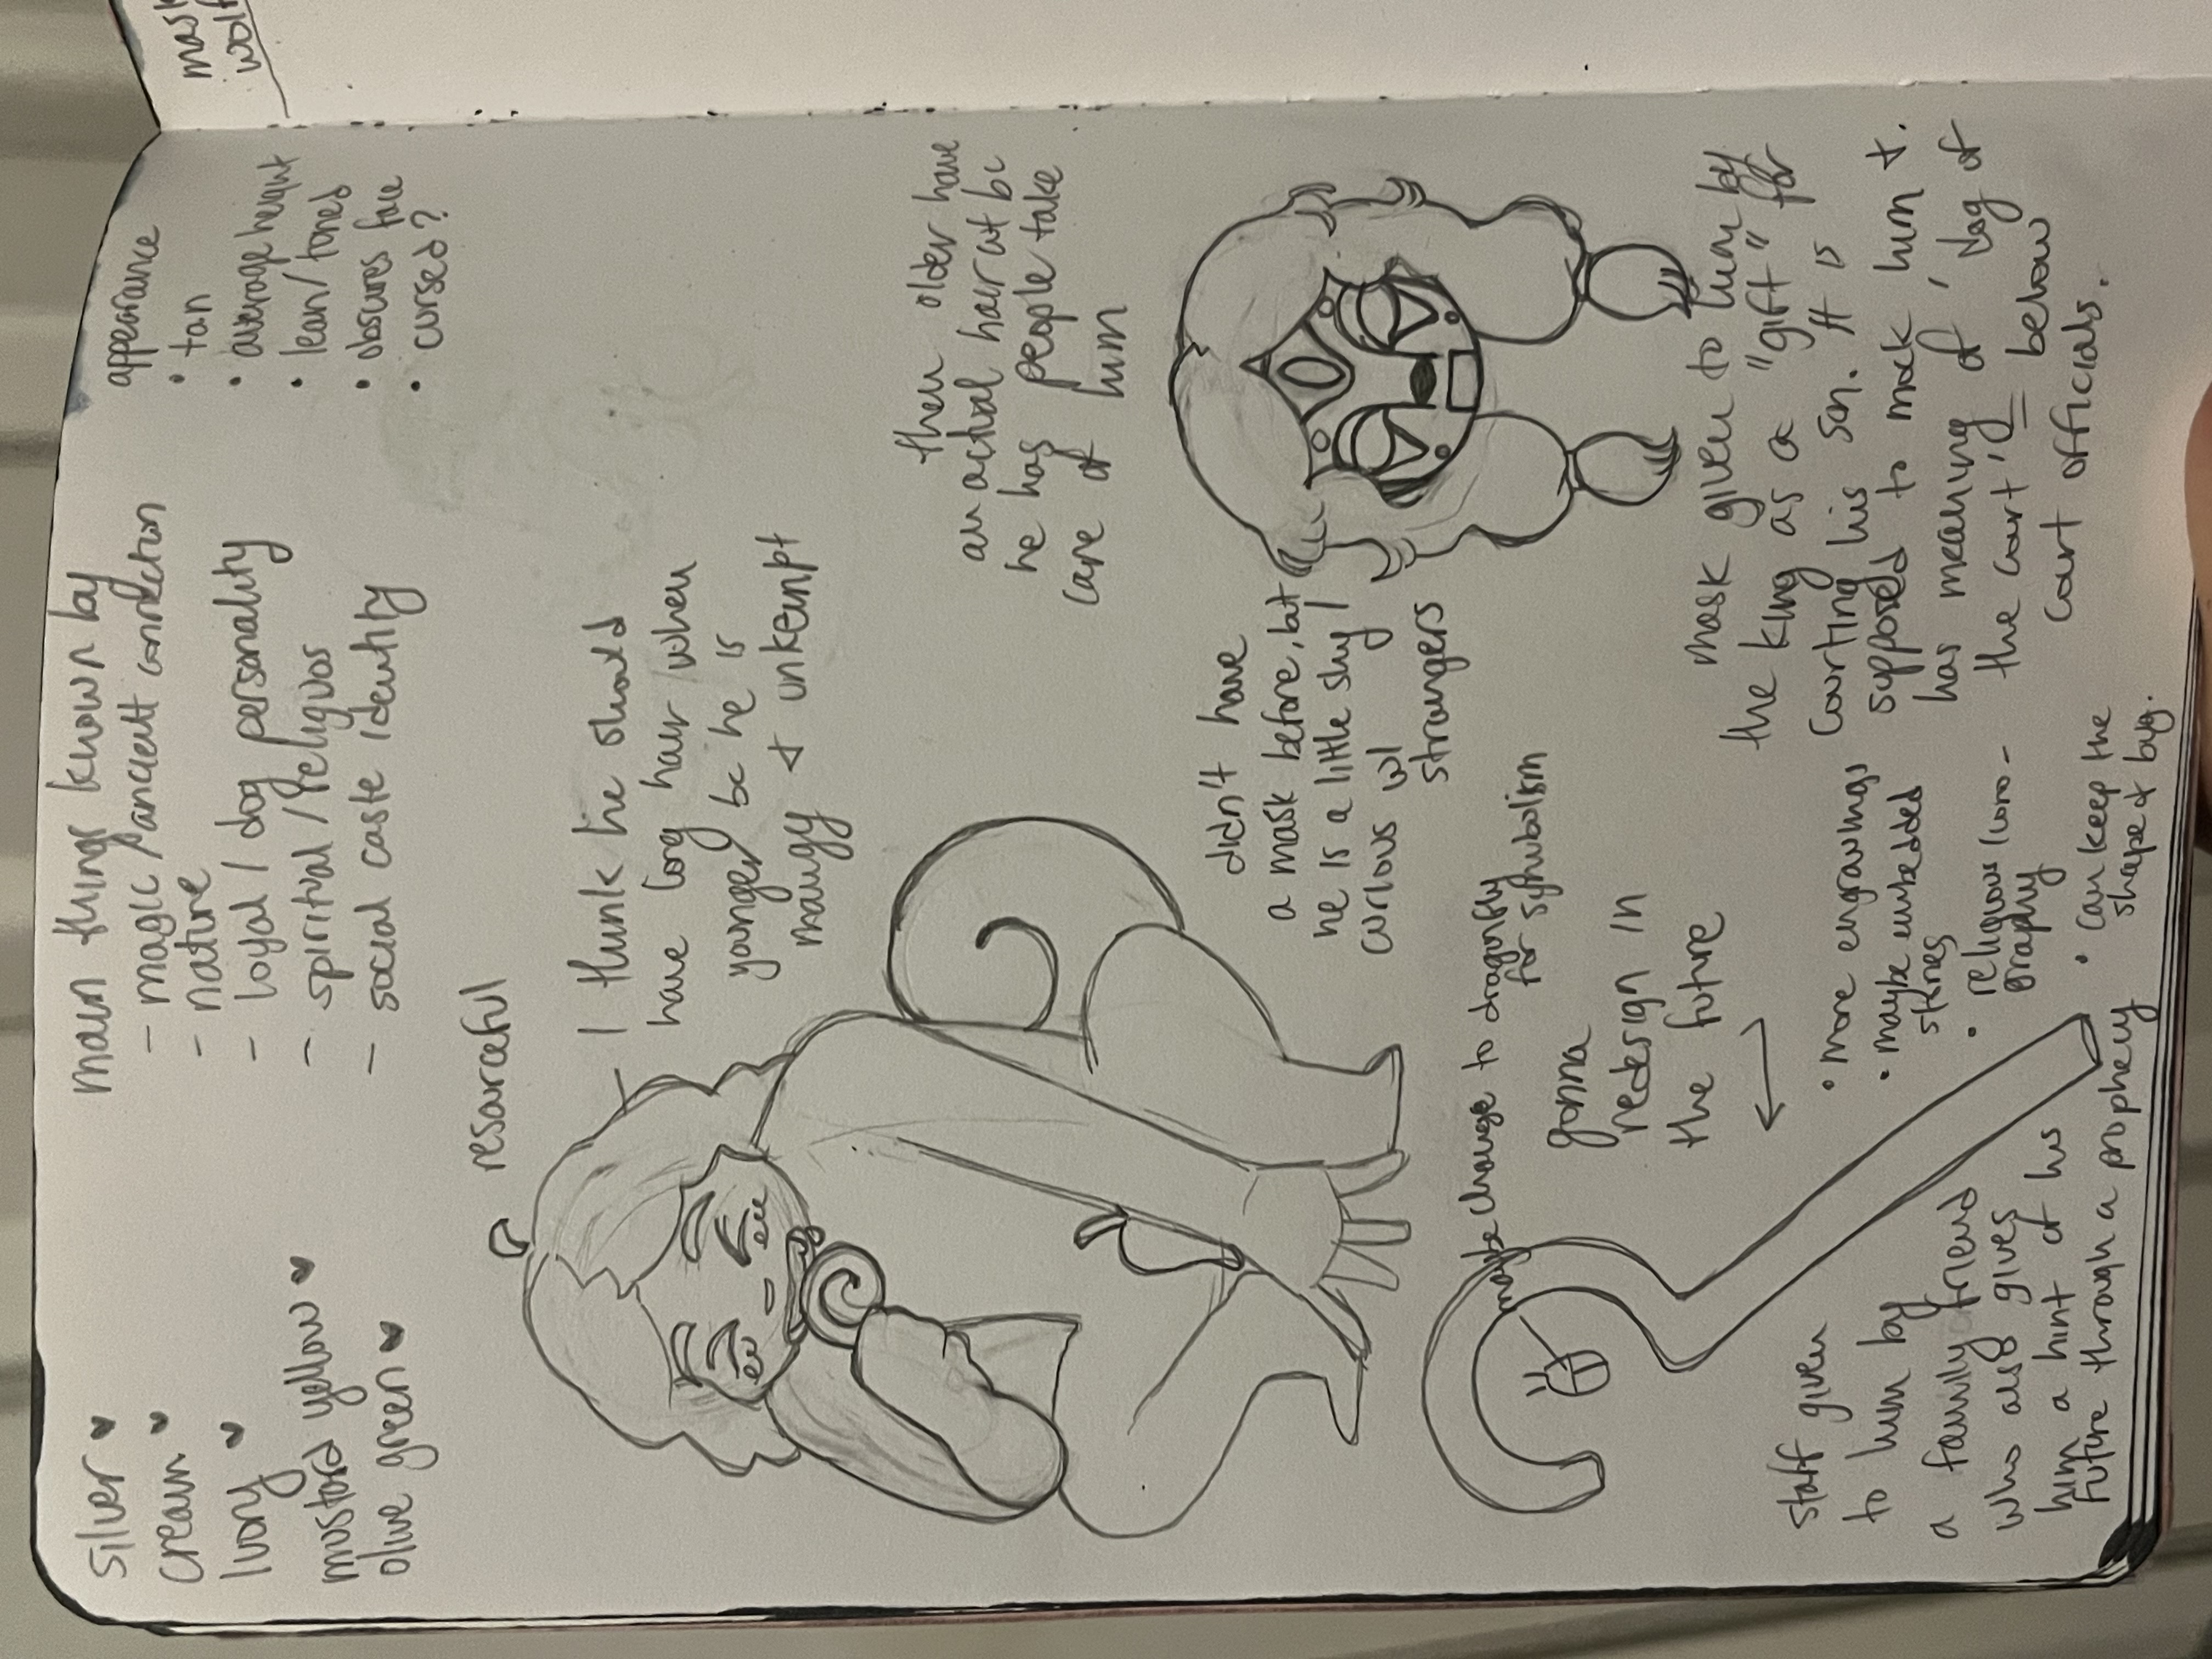 silver ♥
cream ♥
Ivory ♥
mustard yellow ♥
olive green ♥
main things known by
- magic / ancient connection
- nature
- loyal / dog personality
- spiritual / religuos
- social caste identity
appearance
• tan
• average height
• lean / toned
• obscures face
• cursed?
resourceful
I think he should
have long hair when
younger bc he is
mangy & unkempt
then older have
an actual hair cut bc
he has people take
care of him
didn't have
a mask before, but
he is a little shy /
curious w/
strangers
maybe change to dragonfly
for symbolism
gonna
redesign in
the future
staff given
to him by
a family friend
who also gives
him a hint of his
future through a prophecy
• more engravings
• maybe embedded
stones
• religious icono-
graphy
• can keep the
shape & bug.
mask given to him by
the king as a "gift" for
courting his son. It is
supposed to mock him &
has meaning of 'dog of
the court' = below
court officials.